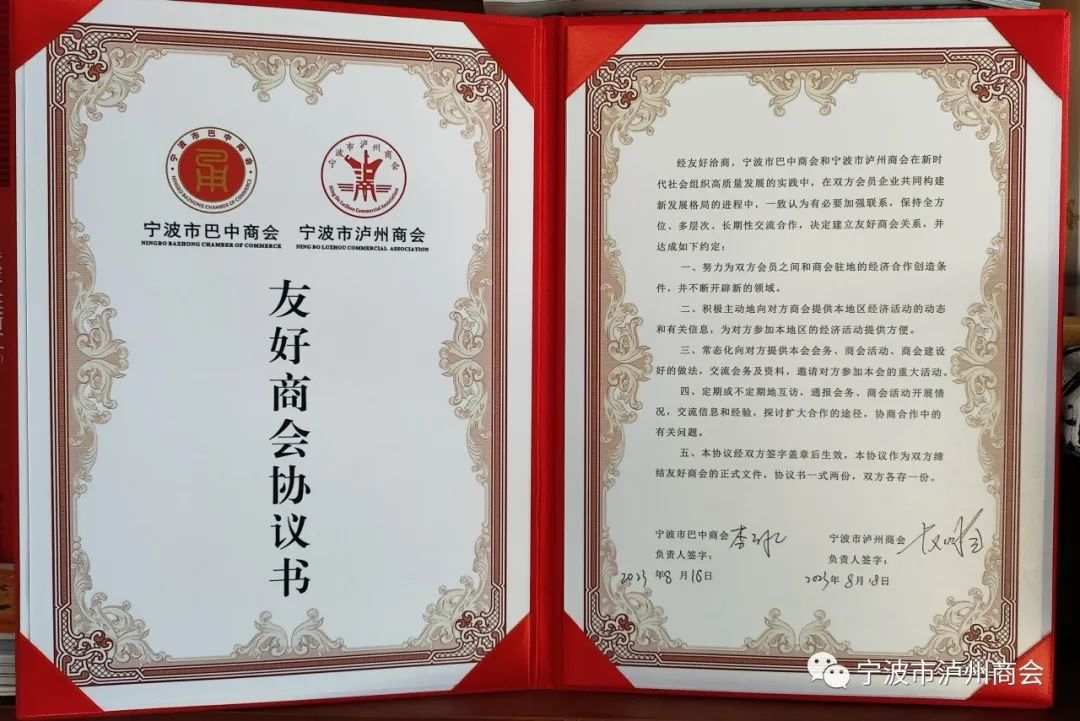 宁波市巴中商会
NINGBO BAZHONG CHAMBER OF COMMERCE
宁波市泸州商会
Ning Bo LuZhou Commercial Association
宁波市巴中商会
NINGBO BAZHONG CHAMBER OF COMMERCE
宁波市泸州商会
NING BO LUZHOU COMMERCIAL ASSOCIATION
友好商会协议书
经友好洽商，宁波市巴中商会和宁波市泸州商会在新时
代社会组织高质量发展的实践中，在双方会员企业共同构建
新发展格局的进程中，一致认为有必要加强联系，保持全方
位、多层次、长期性交流合作，决定建立友好商会关系，并
达成如下约定：
一、努力为双方会员之间和商会驻地的经济合作创造条
件，并不断开辟新的领域。
二、积极主动地向对方商会提供本地区经济活动的动态
和有关信息，为对方参加本地区的经济活动提供方便。
三、常态化向对方提供本会会务、商会活动、商会建设
好的做法，交流会务及资料，邀请对方参加本会的重大活动。
四、定期或不定期地互访，通报会务、商会活动开展情
况，交流信息和经验，探讨扩大合作的途径，协商合作中的
有关问题。
五、本协议经双方签字盖章后生效，本协议作为双方缔
结友好商会的正式文件，协议书一式两份，双方各存一份。
宁波市巴中商会
负责人签字：
2023年8月18日
宁波市泸州商会
负责人签字：
2023年8月18日
宁波市泸州商会